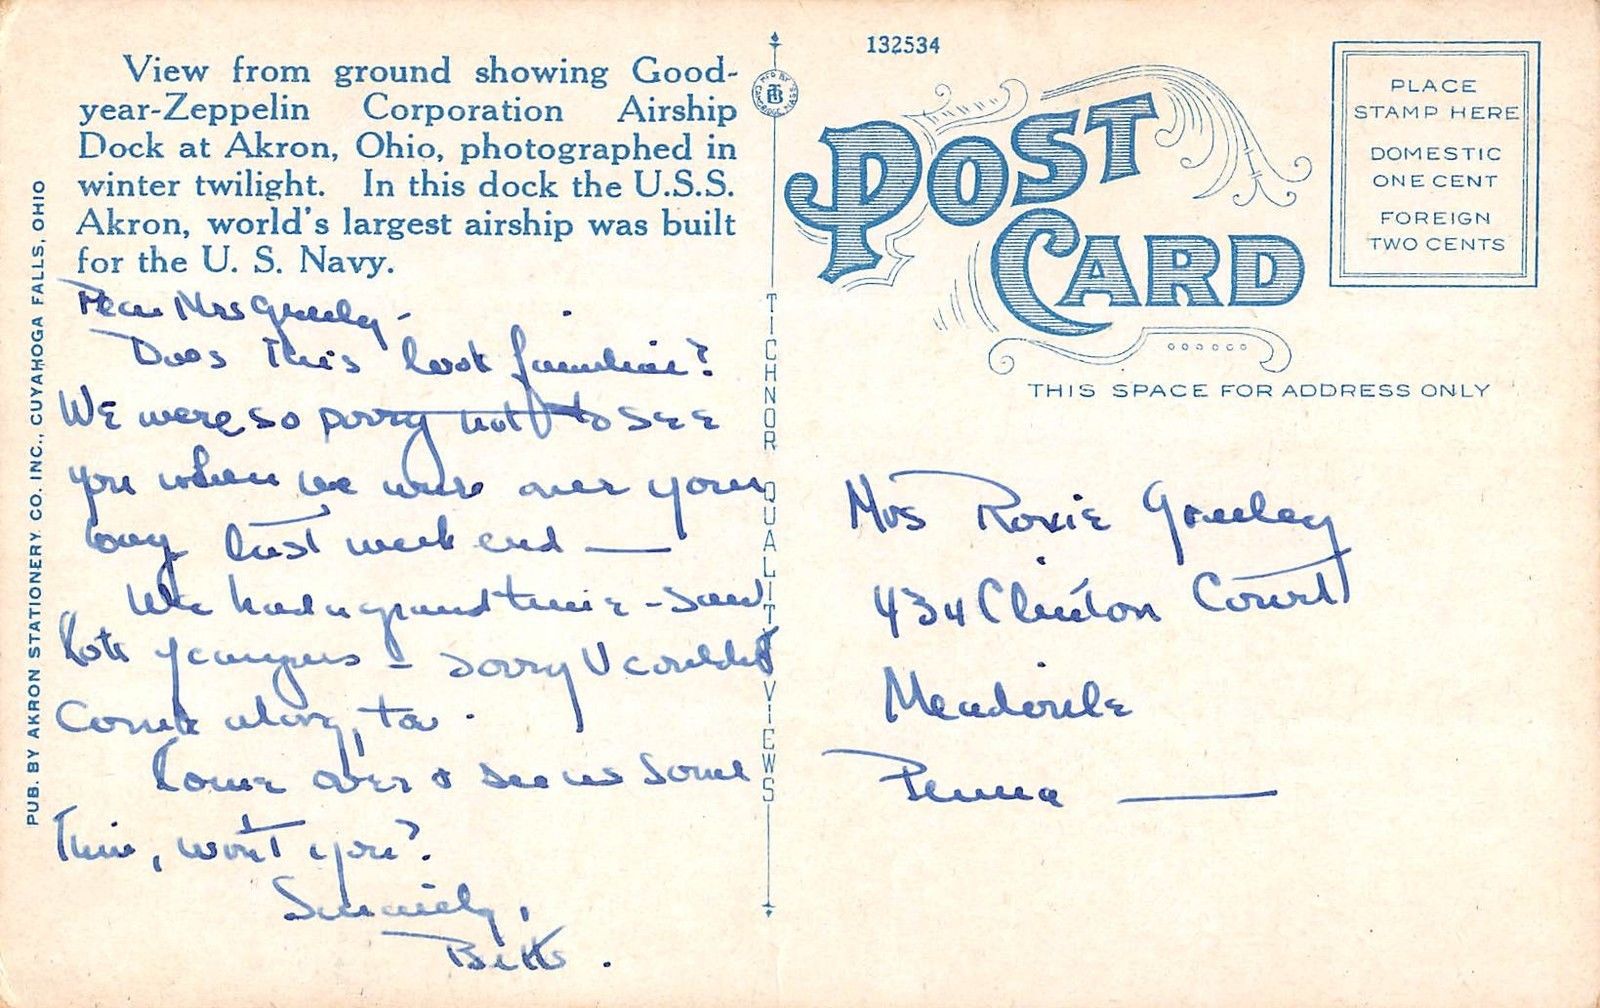 View from ground showing Good-
year-Zeppelin Corporation Airship
Dock at Akron, Ohio, photographed in
winter twilight. In this dock the U.S.S.
Akron, world's largest airship was built
for the U. S. Navy.
Dear Mrs Greeley -
Does this look familiar?
We were so sorry not to see
you when we were over your
way last week end —
We had a grand time - saw
lots of canyons - sorry U couldn't
come along, too.
Come over & see us some
time, won't you?
Sincerely,
Bette.
PUB. BY AKRON STATIONERY CO. INC., CUYAHOGA FALLS, OHIO
MFD BY
TB
CAMBRIDGE MASS
TICHNOR QUALITY VIEWS
132534
POST
CARD
PLACE
STAMP HERE
DOMESTIC
ONE CENT
FOREIGN
TWO CENTS
THIS SPACE FOR ADDRESS ONLY
Mrs Roxie Greeley
434 Clinton Court
Meadville
Penna —